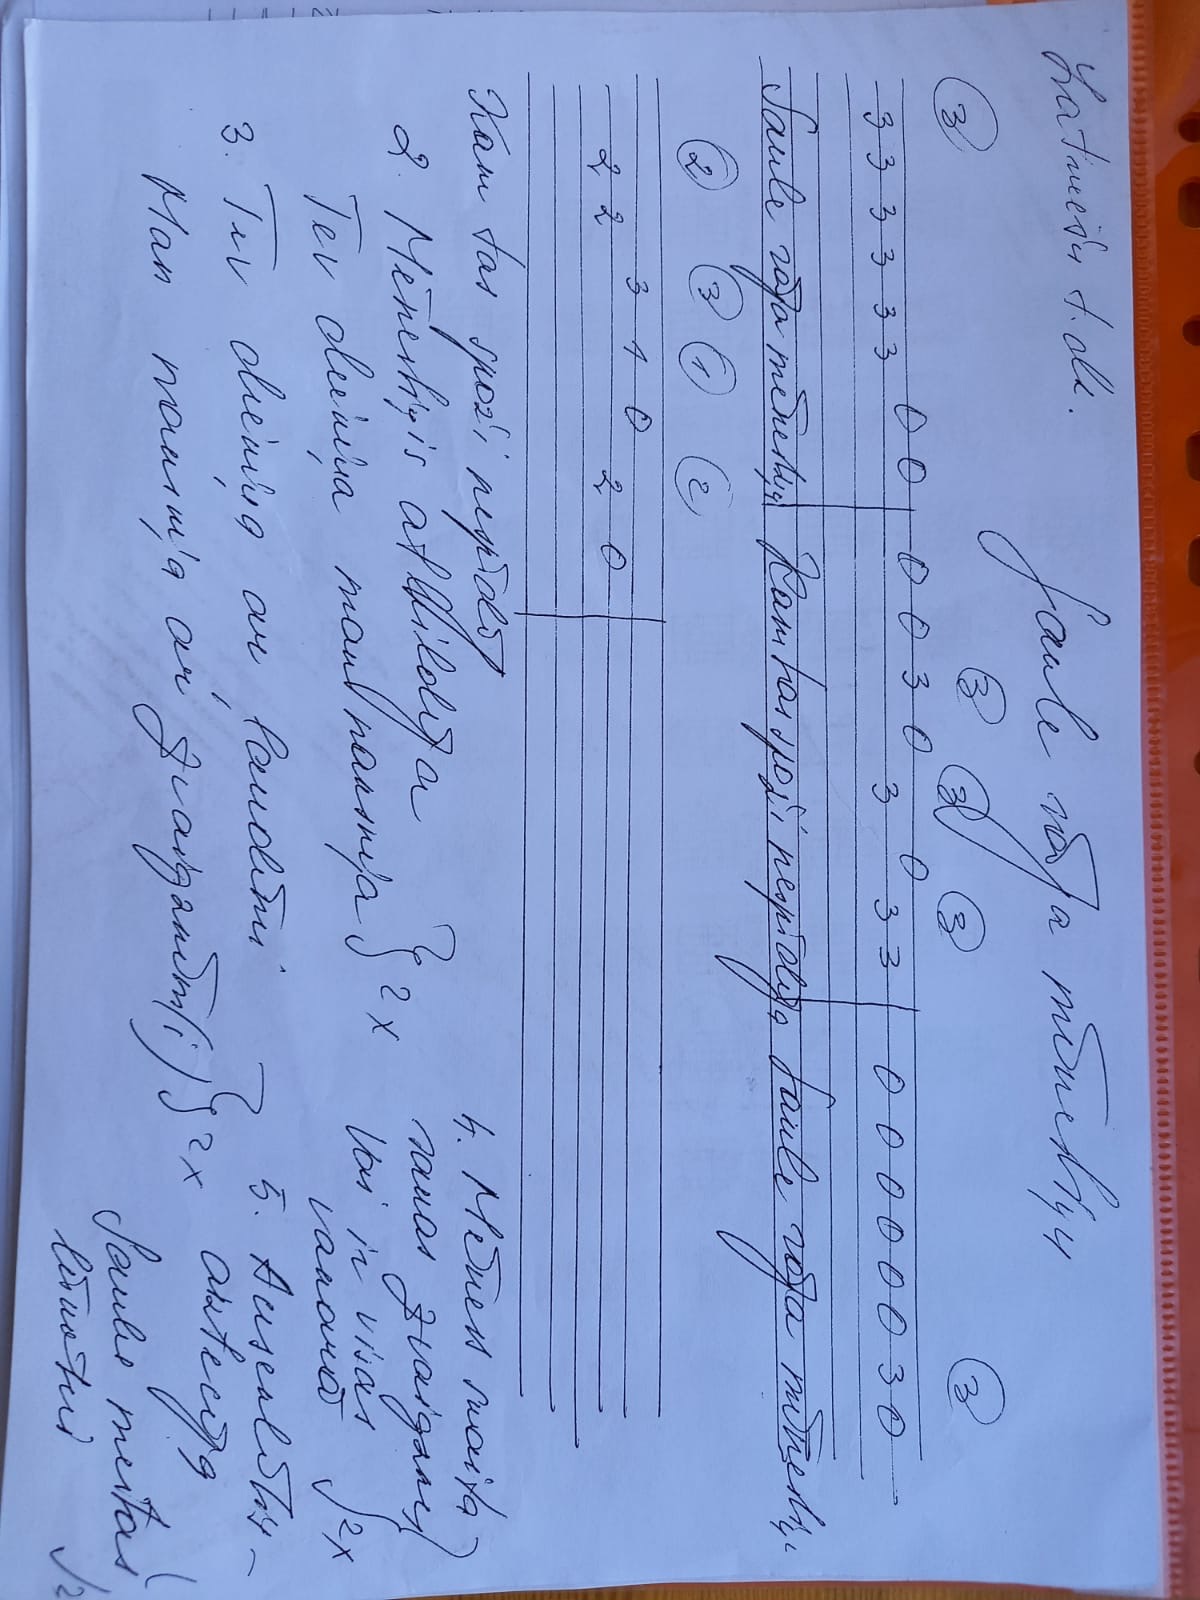 Latviešu t.dz.
Saule rāja mēnestiņu
3 3 3 3 3
3 3 3 3 3 3 0 0 0 0 3 0 3 0 3 3 0 0 0 0 0 0 3 0
Saule rāja mēnestiņu Kam tas spoži nespīdēja Saule rāja mēnestiņu
2 3 1 2
2 2 3 1 0 2 0
Kam tas spoži nespīdēj
2. Mēnestiņis atbildēja } 2x
Tev dieniņa man naksniņa
3. Tev dieniņa ar ļaudīmi } 2x
Man naksniņa ar zvaigznēm(i)
4. Mēness skaita
savas zvaigznes
Vai ir visas
vakarā } 2x
5. Auseklītis
aiztecēja
Saules meitas
lūkoties 2